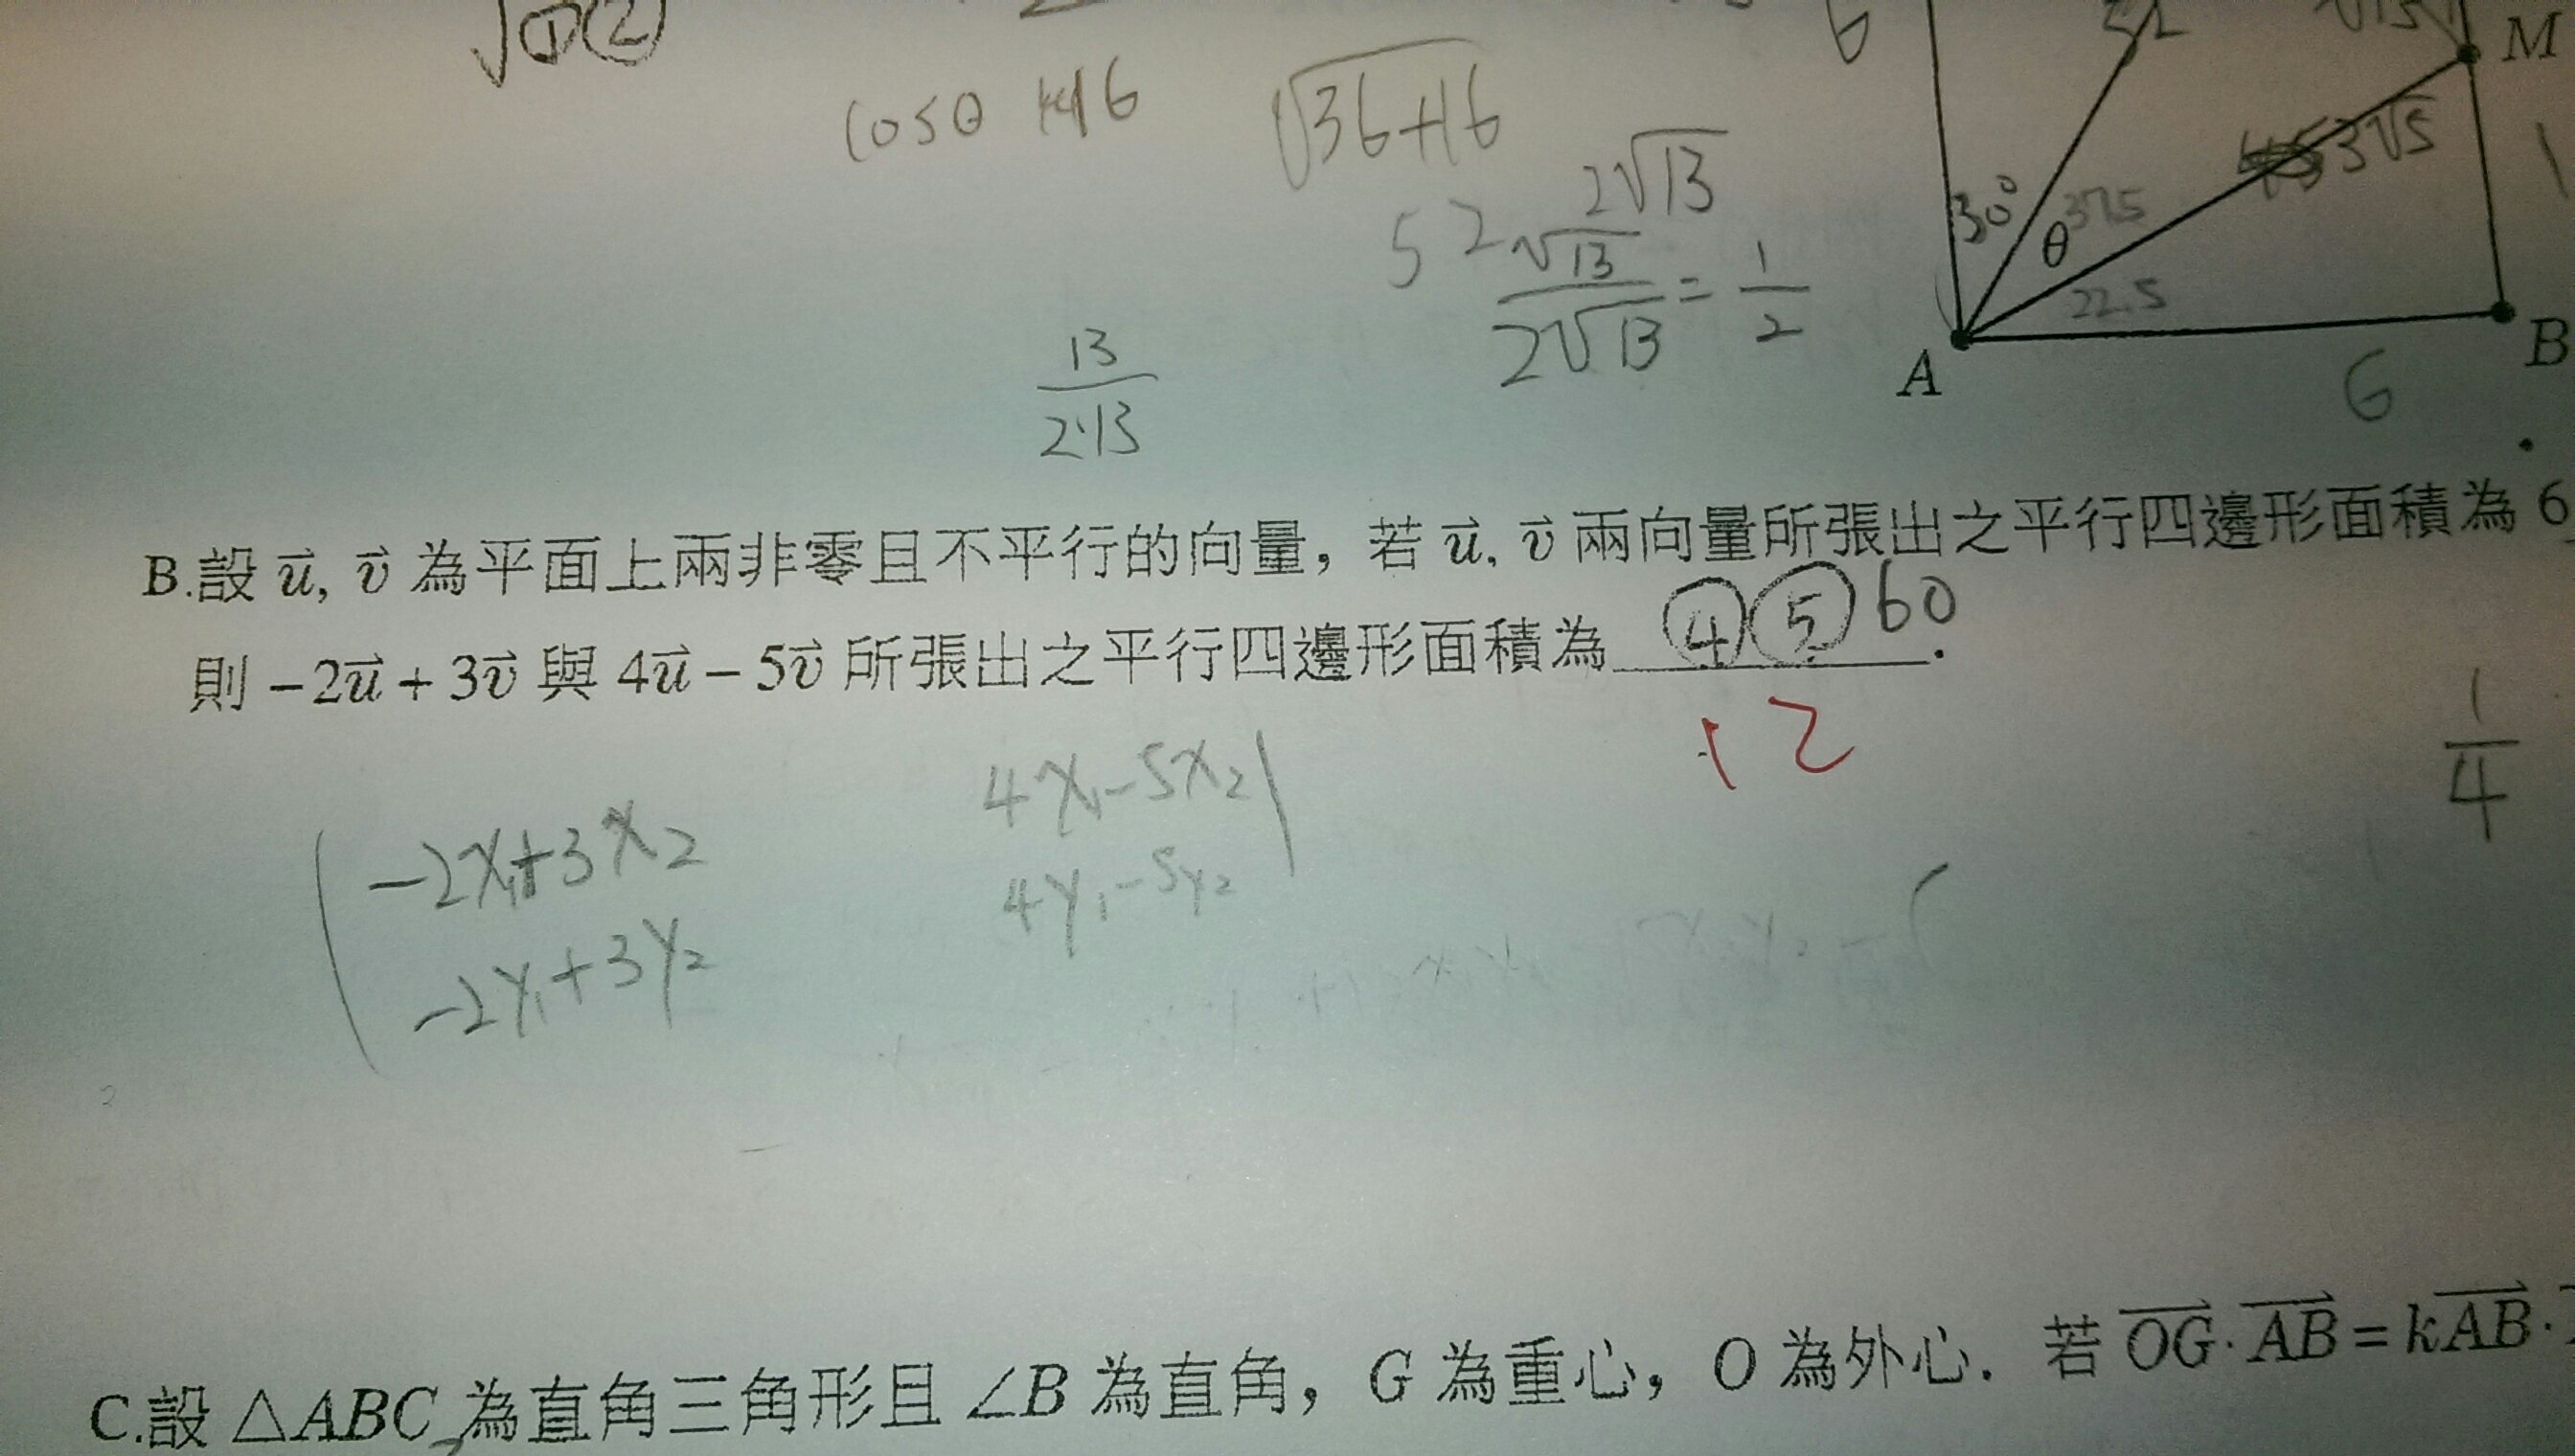 √①②
cosθ
6
52
√13
M
√36+16
2√13
52
√13/2√13 = 1/2
3√5
1
30°
θ 37.5
22.5
A
B
6
13/2·13
B.設 u⃗, v⃗ 為平面上兩非零且不平行的向量，若 u⃗, v⃗ 兩向量所張出之平行四邊形面積為 6
則 −2u⃗ + 3v⃗ 與 4u⃗ − 5v⃗ 所張出之平行四邊形面積為 ④⑤ 60 .
12
1/4
-2x₁+3x₂ 4x₁-5x₂
-2y₁+3y₂ 4y₁-5y₂
C.設 △ABC 為直角三角形且 ∠B 為直角，G 為重心，O 為外心．若 OG⃗ · AB⃗ = kAB⃗ ·